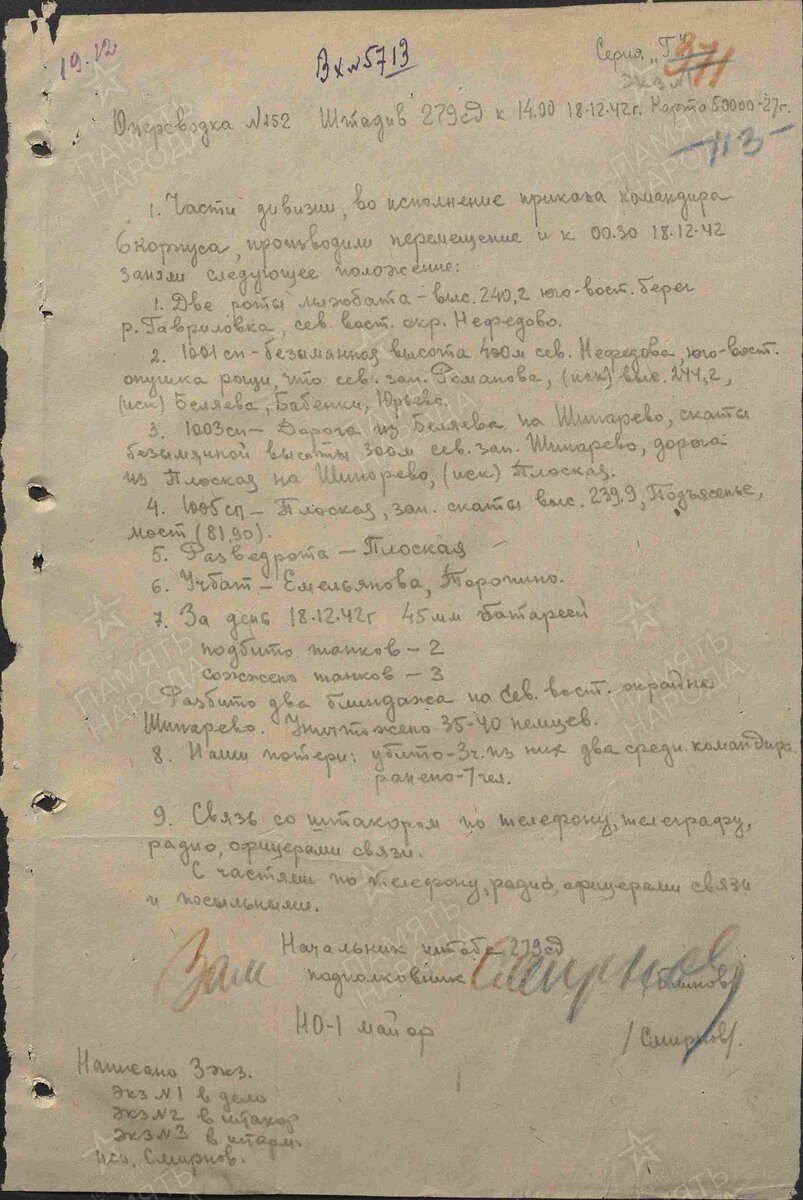 19.12
Вх №5713
Серия "Г"
экз №
Оперсводка №152 Штадив 279сд к 14.00 18.12.42г. Карта 50000-27г.
-113-
1. Части дивизии, во исполнение приказа командира
6 корпуса, производили перемещение и к 00.30 18.12.42
заняли следующее положение:
1. Две роты лыжбата - выс. 240,2 юго-вост. берег
р. Гавриловка, сев. вост. окр. Нефедово.
2. 1001сп - безымянная высота 400м сев. Нефедова, юго-вост.
опушка рощи, что сев. зап. Романова, (иск) выс. 244,2,
(иск) Беляева, Бабенки, Юрьево.
3. 1003сп - Дорога из Беляева на Шипарево, скаты
безымянной высоты 300м сев. зап. Шипарево, дорога
из Плоская на Шипорево, (иск) Плоская.
4. 1005сп - Плоская, зап. скаты выс. 239.9, Подъясенье,
мост (81.90).
5. Разведрота - Плоская
6. Учбат - Емельянова, Торопино.
7. За день 18.12.42г 45мм батареей
подбито танков - 2
сожжено танков - 3
Разбито два блиндажа на сев. вост. окраине
Шипарево. Уничтожено 35-40 немцев.
8. Наши потери: убито-3ч. из них два средн. командира.
ранено-7чел.
9. Связь со штакором по телефону, телеграфу,
радио, офицерами связи.
С частями по телефону, радио, офицерами связи
и посыльными.
Начальник штаба 279сд
Зам подполковник Смирнов
НО-1 майор /Смирнов/.
Написано 3 экз.
Экз №1 в дело
Экз №2 в штакор
Экз №3 в штарм.
исп. Смирнов.
ПАМЯТЬ
НАРОДА